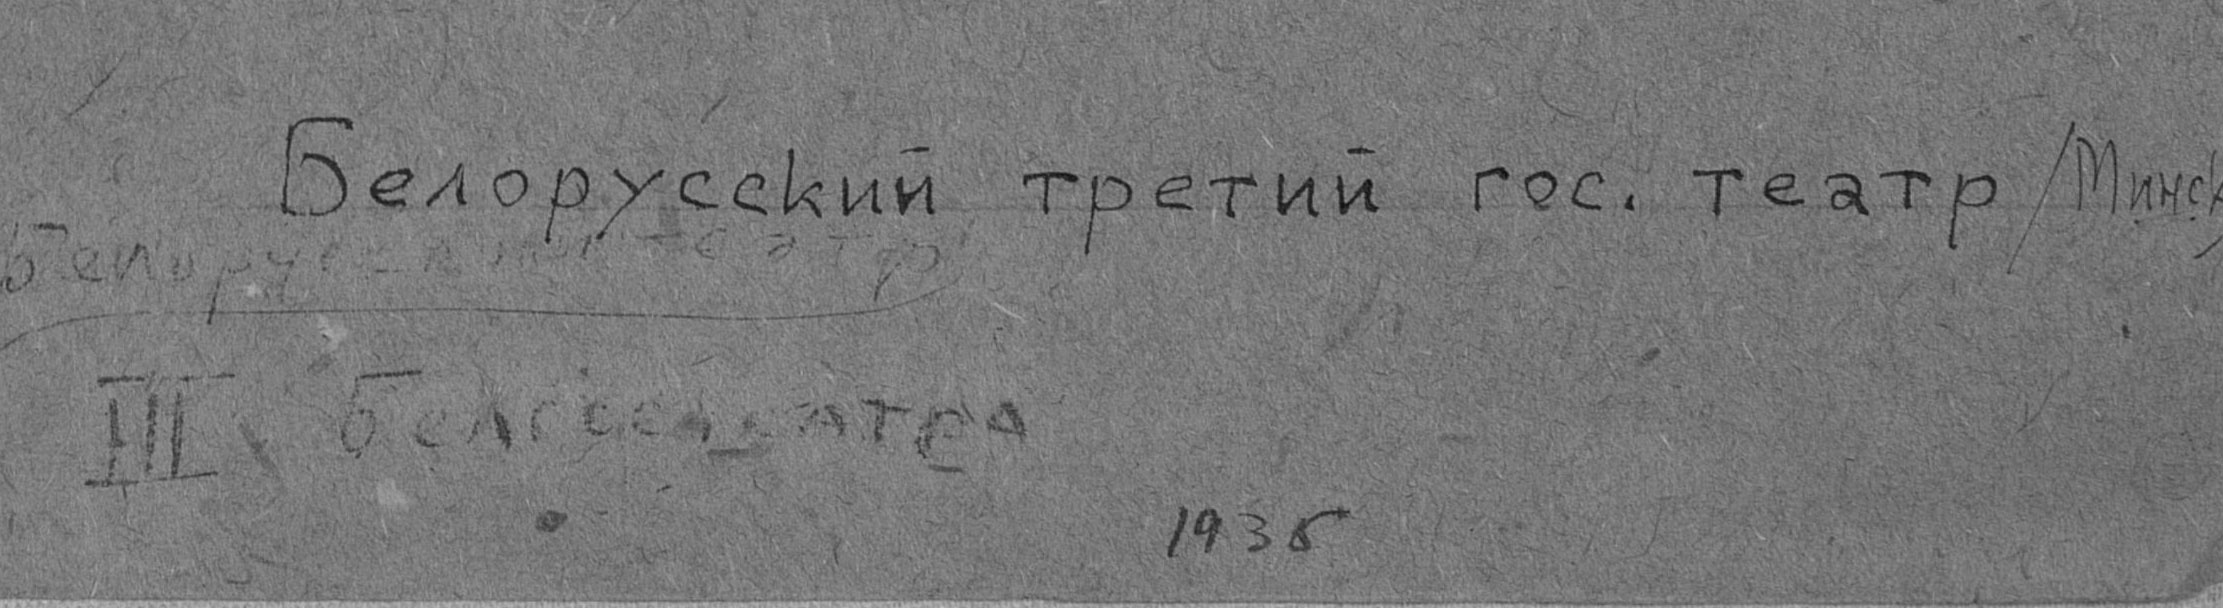 Белорусский третий гос. театр /Минск
Белорусский театр
III Белгостеатра
1935